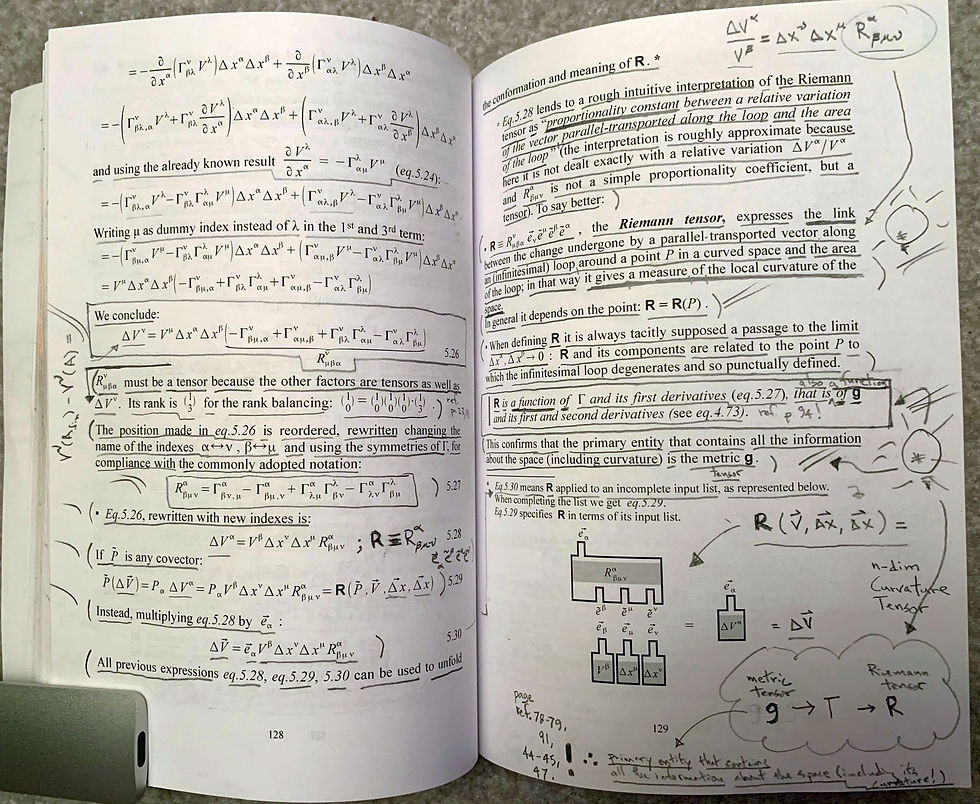 = −∂/∂x^α (Γ^ν_βλ V^λ) Δx^α Δx^β + ∂/∂x^β (Γ^ν_αλ V^λ) Δx^β Δx^α
= −(Γ^ν_βλ,α V^λ + Γ^ν_βλ ∂V^λ/∂x^α) Δx^α Δx^β + (Γ^ν_αλ,β V^λ + Γ^ν_αλ ∂V^λ/∂x^β) Δx^β Δx^α
and using the already known result ∂V^λ/∂x^α = −Γ^λ_αμ V^μ (eq.5.24):
= −(Γ^ν_βλ,α V^λ − Γ^ν_βλ Γ^λ_αμ V^μ) Δx^α Δx^β + (Γ^ν_αλ,β V^λ − Γ^ν_αλ Γ^λ_βμ V^μ) Δx^β Δx^α
Writing μ as dummy index instead of λ in the 1st and 3rd term:
= −(Γ^ν_βμ,α V^μ − Γ^ν_βλ Γ^λ_αμ V^μ) Δx^α Δx^β + (Γ^ν_αμ,β V^μ − Γ^ν_αλ Γ^λ_βμ V^μ) Δx^β Δx^α
= V^μ Δx^α Δx^β (−Γ^ν_βμ,α + Γ^ν_βλ Γ^λ_αμ + Γ^ν_αμ,β − Γ^ν_αλ Γ^λ_βμ)
We conclude:
ΔV^ν = V^μ Δx^α Δx^β (−Γ^ν_βμ,α + Γ^ν_αμ,β + Γ^ν_βλ Γ^λ_αμ − Γ^ν_αλ Γ^λ_βμ) 5.26
R^ν_μβα
R^ν_μβα must be a tensor because the other factors are tensors as well as
ΔV^ν. Its rank is (1 3) for the rank balancing: (1 0) = (1 0)(1 0)(1 0)·(1 3). ref.
The position made in eq.5.26 is reordered, rewritten changing the
name of the indexes α↔ν, β↔μ and using the symmetries of Γ, for
compliance with the commonly adopted notation:
R^α_βμν = Γ^α_βν,μ − Γ^α_βμ,ν + Γ^α_λμ Γ^λ_βν − Γ^α_λν Γ^λ_βμ 5.27
• Eq.5.26, rewritten with new indexes is:
ΔV^α = V^β Δx^ν Δx^μ R^α_βμν ; R ≡ R^α_βμν 5.28
If P̃ is any covector:
P̃(ΔV⃗) = P_α ΔV^α = P_α V^β Δx^ν Δx^μ R^α_βμν = R(P̃, V⃗, Δx⃗, Δx⃗) 5.29
Instead, multiplying eq.5.28 by e⃗_α :
ΔV⃗ = e⃗_α V^β Δx^ν Δx^μ R^α_βμν 5.30
All previous expressions eq.5.28, eq.5.29, 5.30 can be used to unfold
128
ΔV^α/V^β = Δx^ν Δx^μ R^α_βμν
the conformation and meaning of R. *
• Eq.5.28 lends to a rough intuitive interpretation of the Riemann
tensor as "proportionality constant between a relative variation
of the vector parallel-transported along the loop and the area
of the loop" (the interpretation is roughly approximate because
here it is not dealt exactly with a relative variation ΔV^α/V^α
and R^α_βμν is not a simple proportionality coefficient, but a
tensor). To say better:
• R ≡ R^ν_μβα e⃗_ν ẽ^μ ẽ^β ẽ^α , the Riemann tensor, expresses the link
between the change undergone by a parallel-transported vector along
an (infinitesimal) loop around a point P in a curved space and the area
of the loop; in that way it gives a measure of the local curvature of the
space.
In general it depends on the point: R = R(P) .
• When defining R it is always tacitly supposed a passage to the limit
Δx^ν, Δx^μ → 0 : R and its components are related to the point P to
which the infinitesimal loop degenerates and so punctually defined.
also a function
R is a function of Γ and its first derivatives (eq.5.27), that is of g
and its first and second derivatives (see eq.4.73). ref p.94!
This confirms that the primary entity that contains all the information
about the space (including curvature) is the metric g.
tensor
• Eq.5.30 means R applied to an incomplete input list, as represented below.
When completing the list we get eq.5.29.
Eq.5.29 specifies R in terms of its input list.
R(V⃗, Δx⃗, Δx⃗) =
e⃗_α
R^α_βμν
ẽ^β ẽ^μ ẽ^ν
e⃗_β e⃗_μ e⃗_ν
V^β Δx^μ Δx^ν
=
e⃗_α
ΔV^α
= ΔV⃗
n-dim
Curvature
Tensor
metric tensor
Riemann tensor
g → Γ → R
129
page
ref. 78-79,
91,
44-45,
47.
! ∴ primary entity that contains
all the information about the space (including its
curvature!)